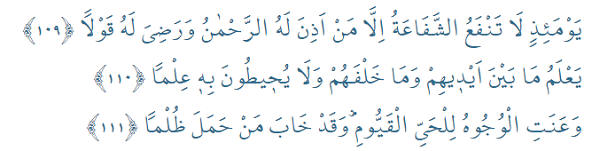 يَوْمَئِذٍ لَا تَنْفَعُ الشَّفَاعَةُ اِلَّا مَنْ اَذِنَ لَهُ الرَّحْمٰنُ وَرَضِيَ لَهُ قَوْلًا ﴿١٠٩﴾
يَعْلَمُ مَا بَيْنَ اَيْدٖيهِمْ وَمَا خَلْفَهُمْ وَلَا يُحٖيطُونَ بِهٖ عِلْمًا ﴿١١٠﴾
وَعَنَتِ الْوُجُوهُ لِلْحَيِّ الْقَيُّومِۜ وَقَدْ خَابَ مَنْ حَمَلَ ظُلْمًا ﴿١١١﴾